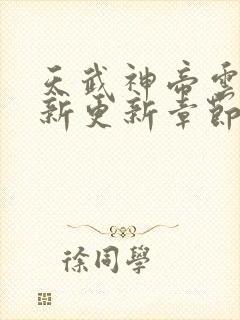 天武神帝雲
新更新章節
徐同學